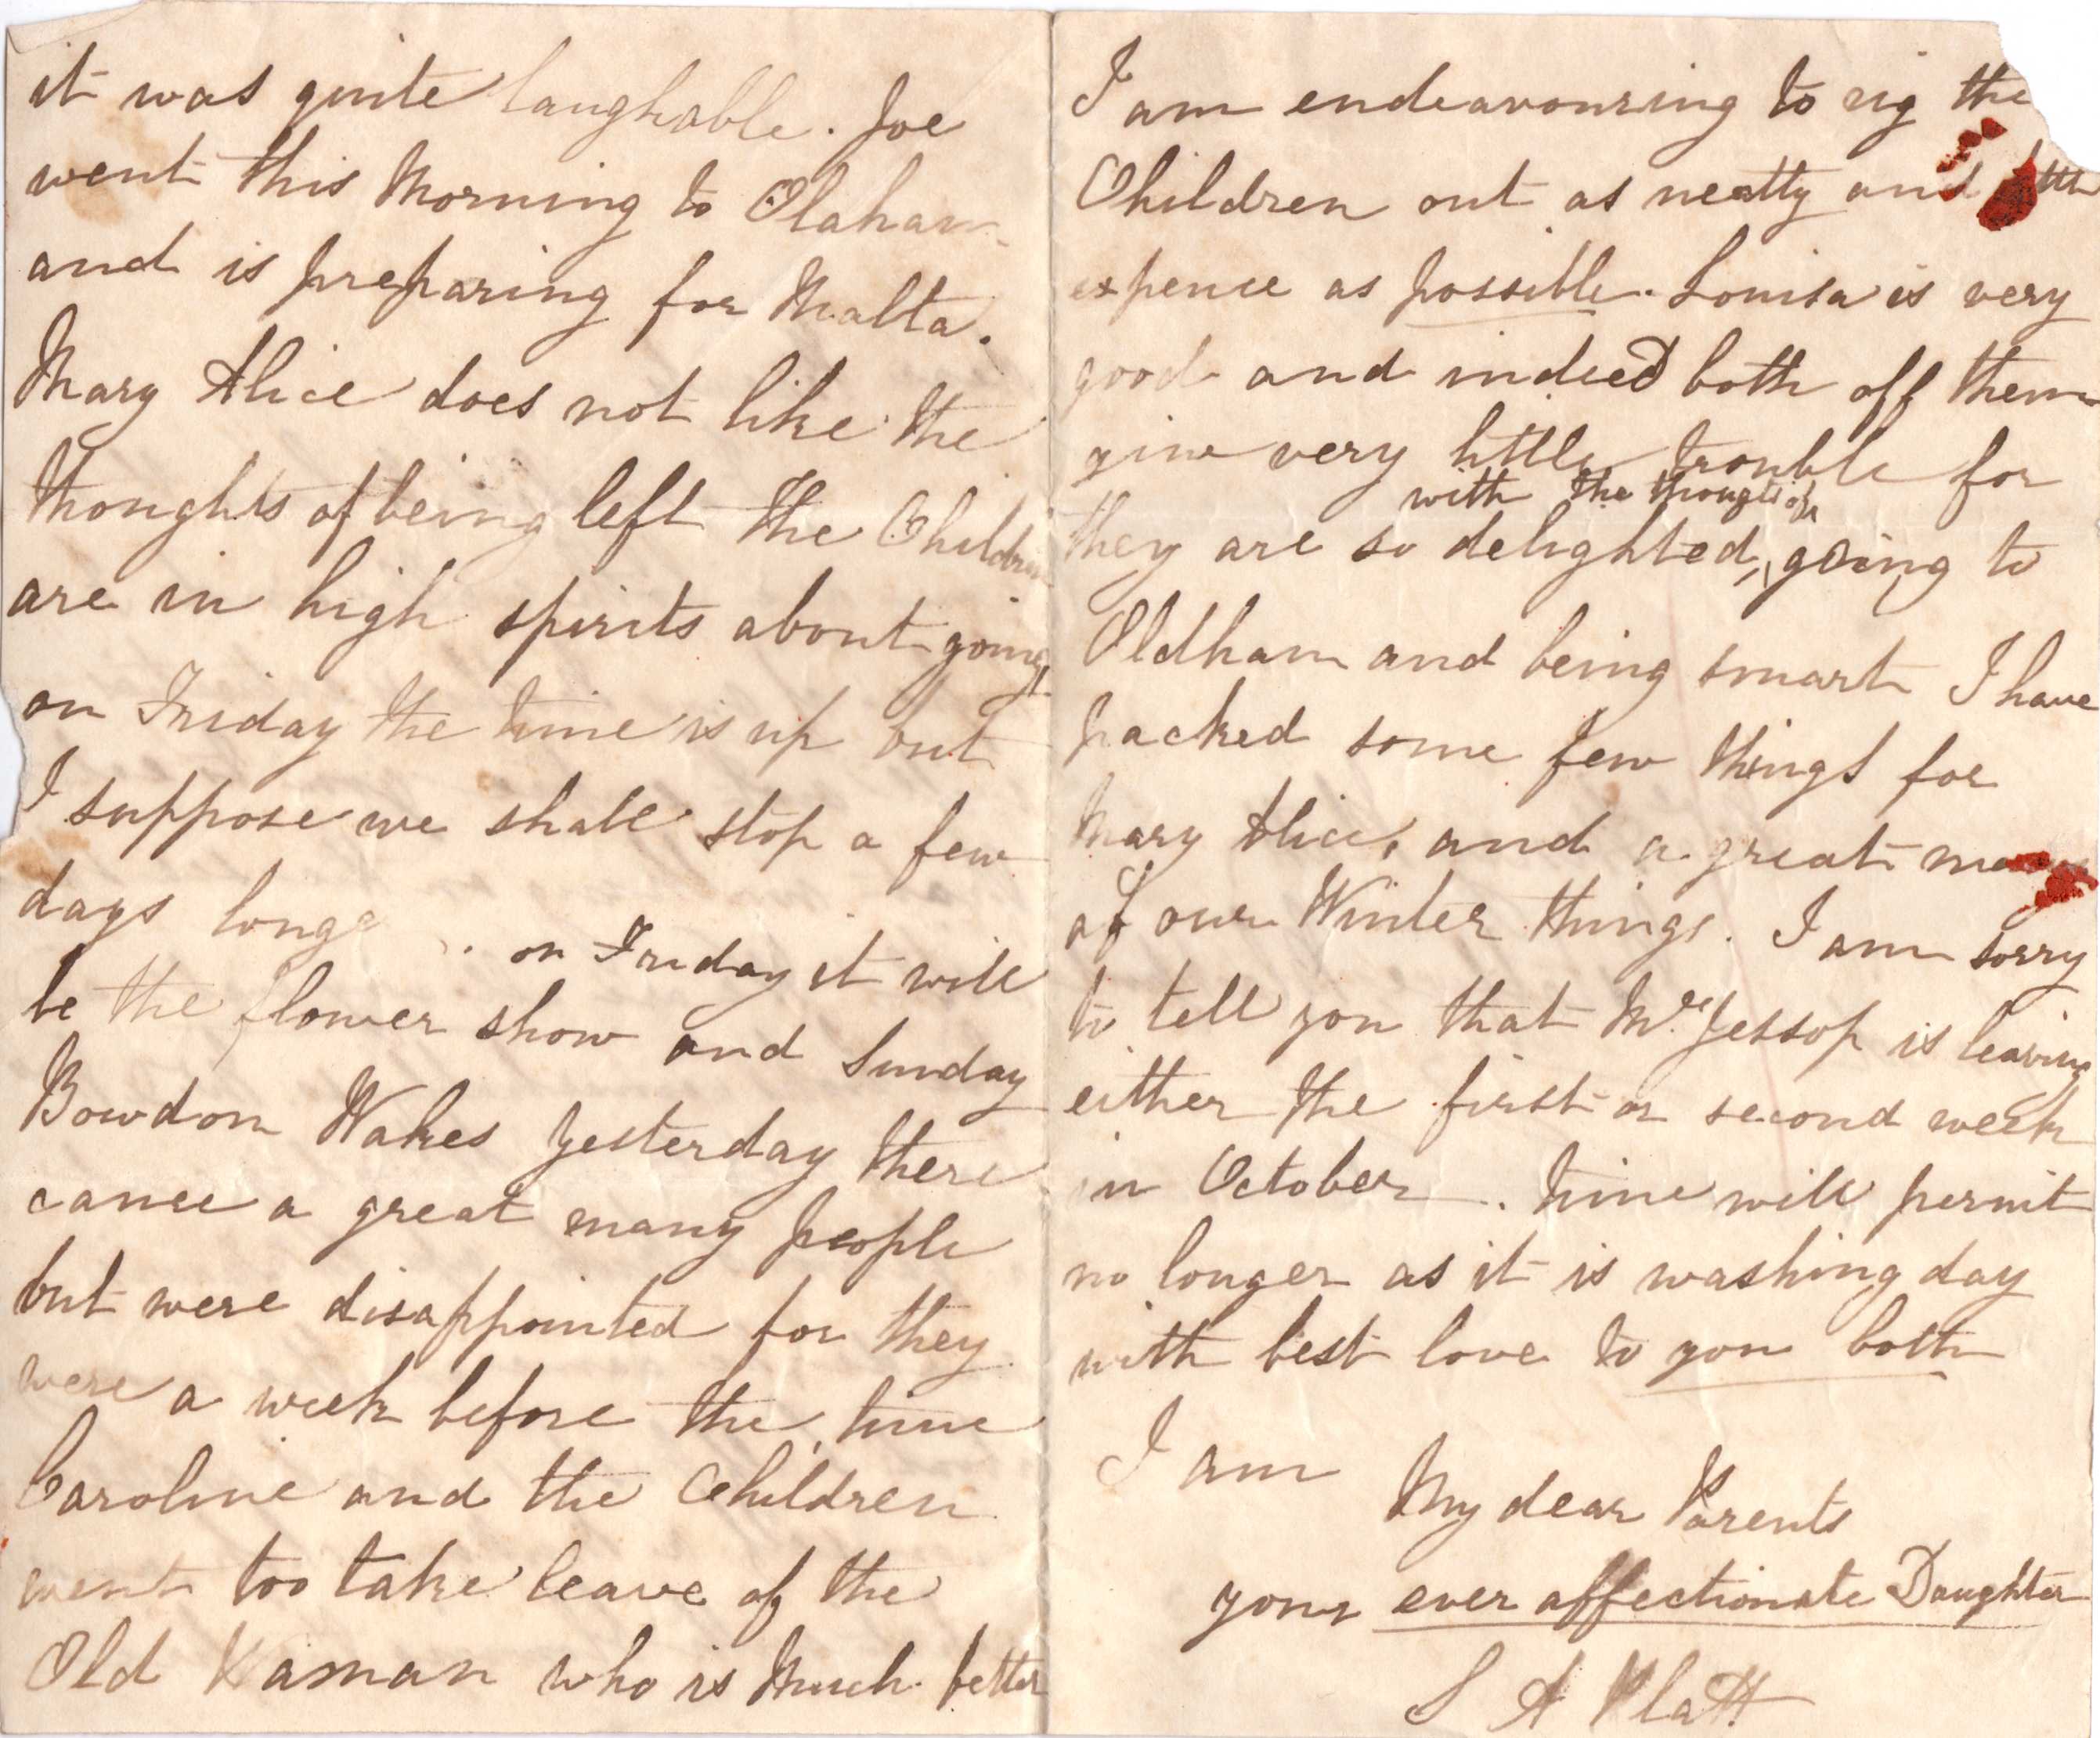 it was quite laughable. Joe
went this Morning to Olaham
and is preparing for Malta.
Mary Alice does not like the
thoughts of being left the Children
are in high spirits about going,
on Friday the time is up but
I suppose we shall stop a few
days longe . on Friday it will
be the flower show and Sunday
Bowdon Wakes yesterday there
came a great many people
but were disappointed for they
were a week before the time
Caroline and the Children
went too take leave of the
Old who is Much better
I am endeavouring to rig the
Children out as neatly and
expence as possible. Louisa is very
good and indeed both off them
give very little trouble for
with the thoughts of
they are so delighted, going to
Oldham and being smart I have
packed some few things for
Mary Alice, and a great
of our Winter things. I am sorry
to tell you that Mr. Jessop is leaving
either the first or second week
in October. time will permit
no longer as it is washing day
with best love to you both
I am
My dear Parents
your ever affectionate Daughter
S A Platt